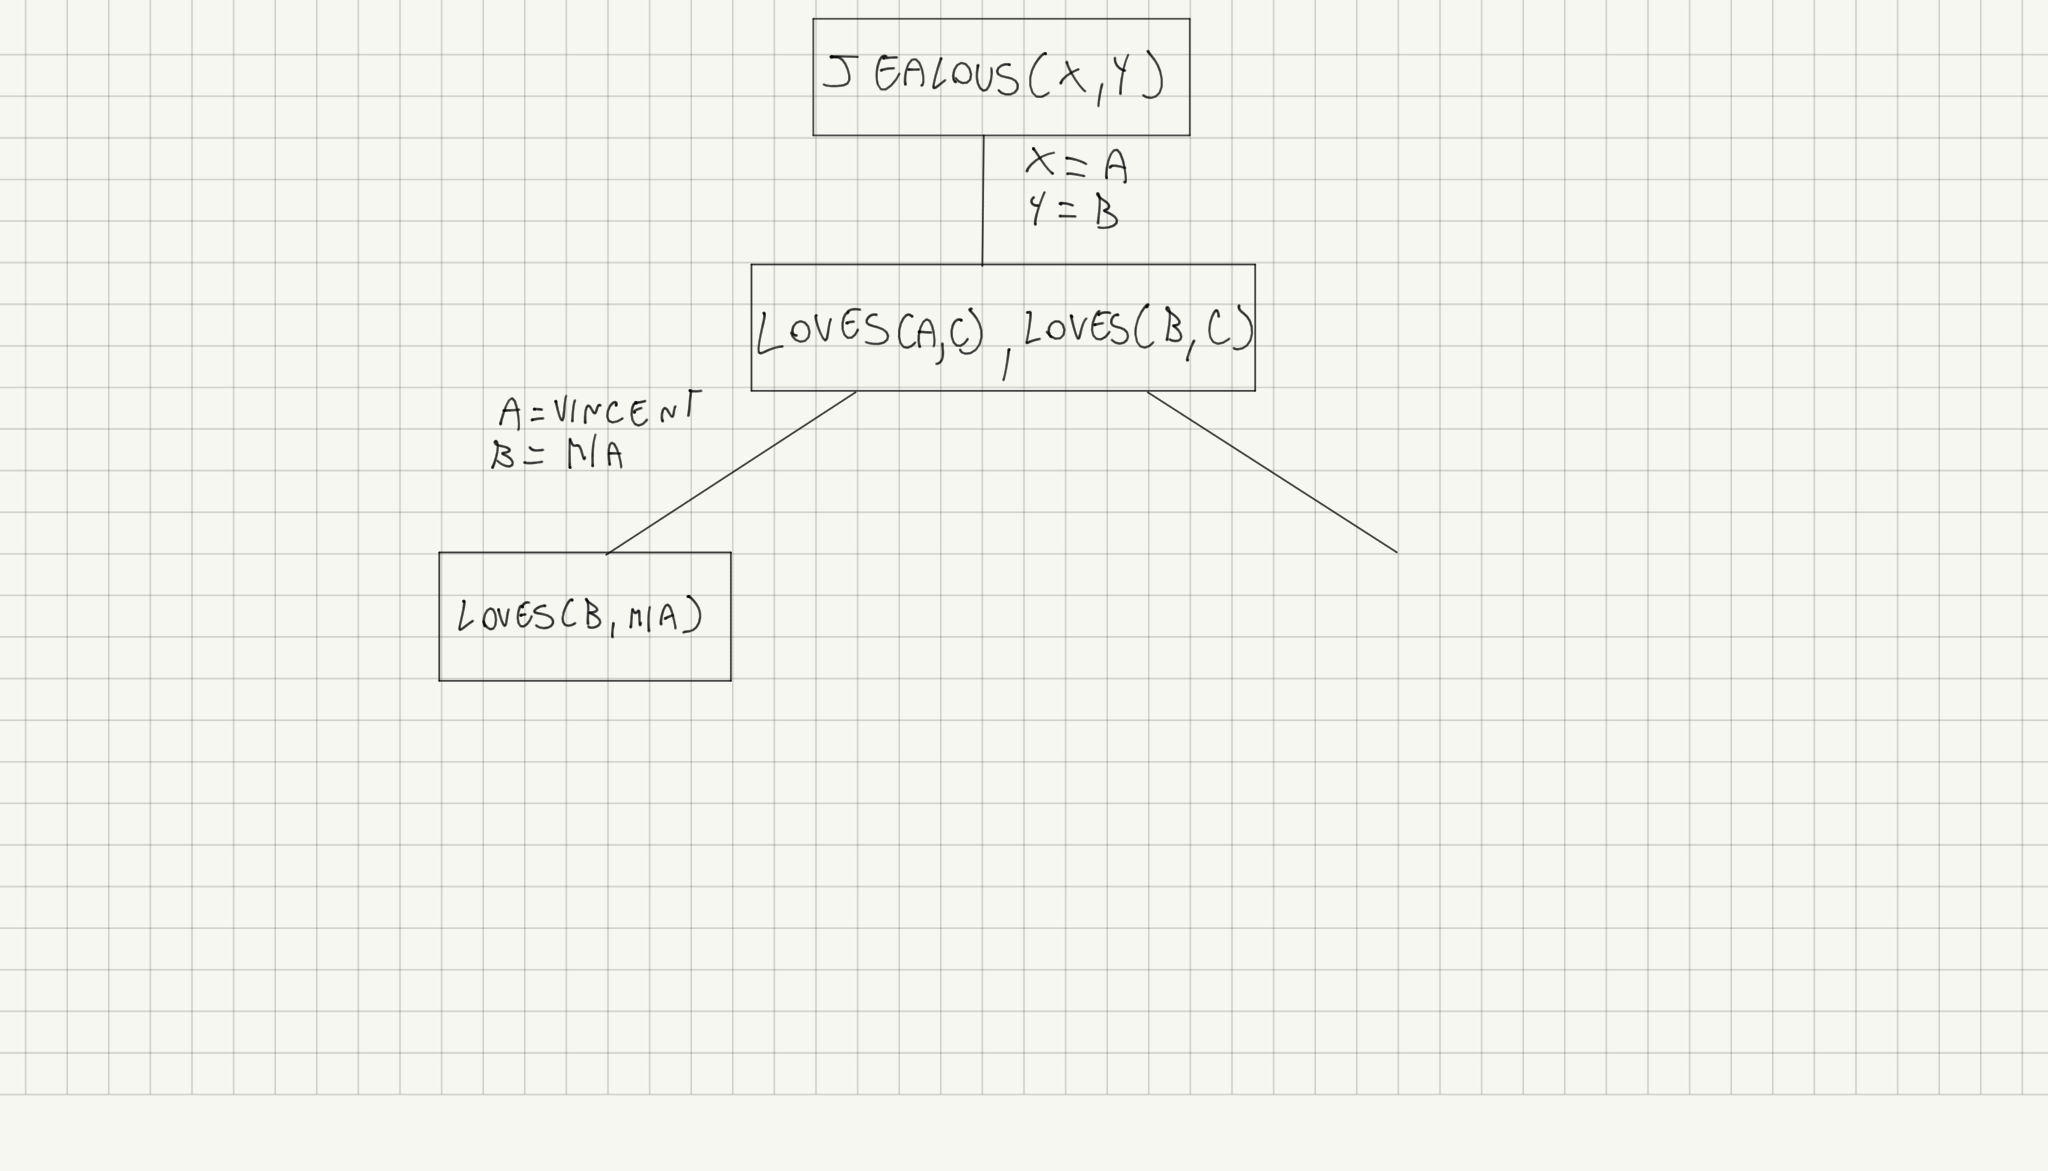 JEALOUS(X,Y)
X = A
Y = B
LOVES(A,C), LOVES(B,C)
A = VINCENT
B = MIA
LOVES(B, MIA)